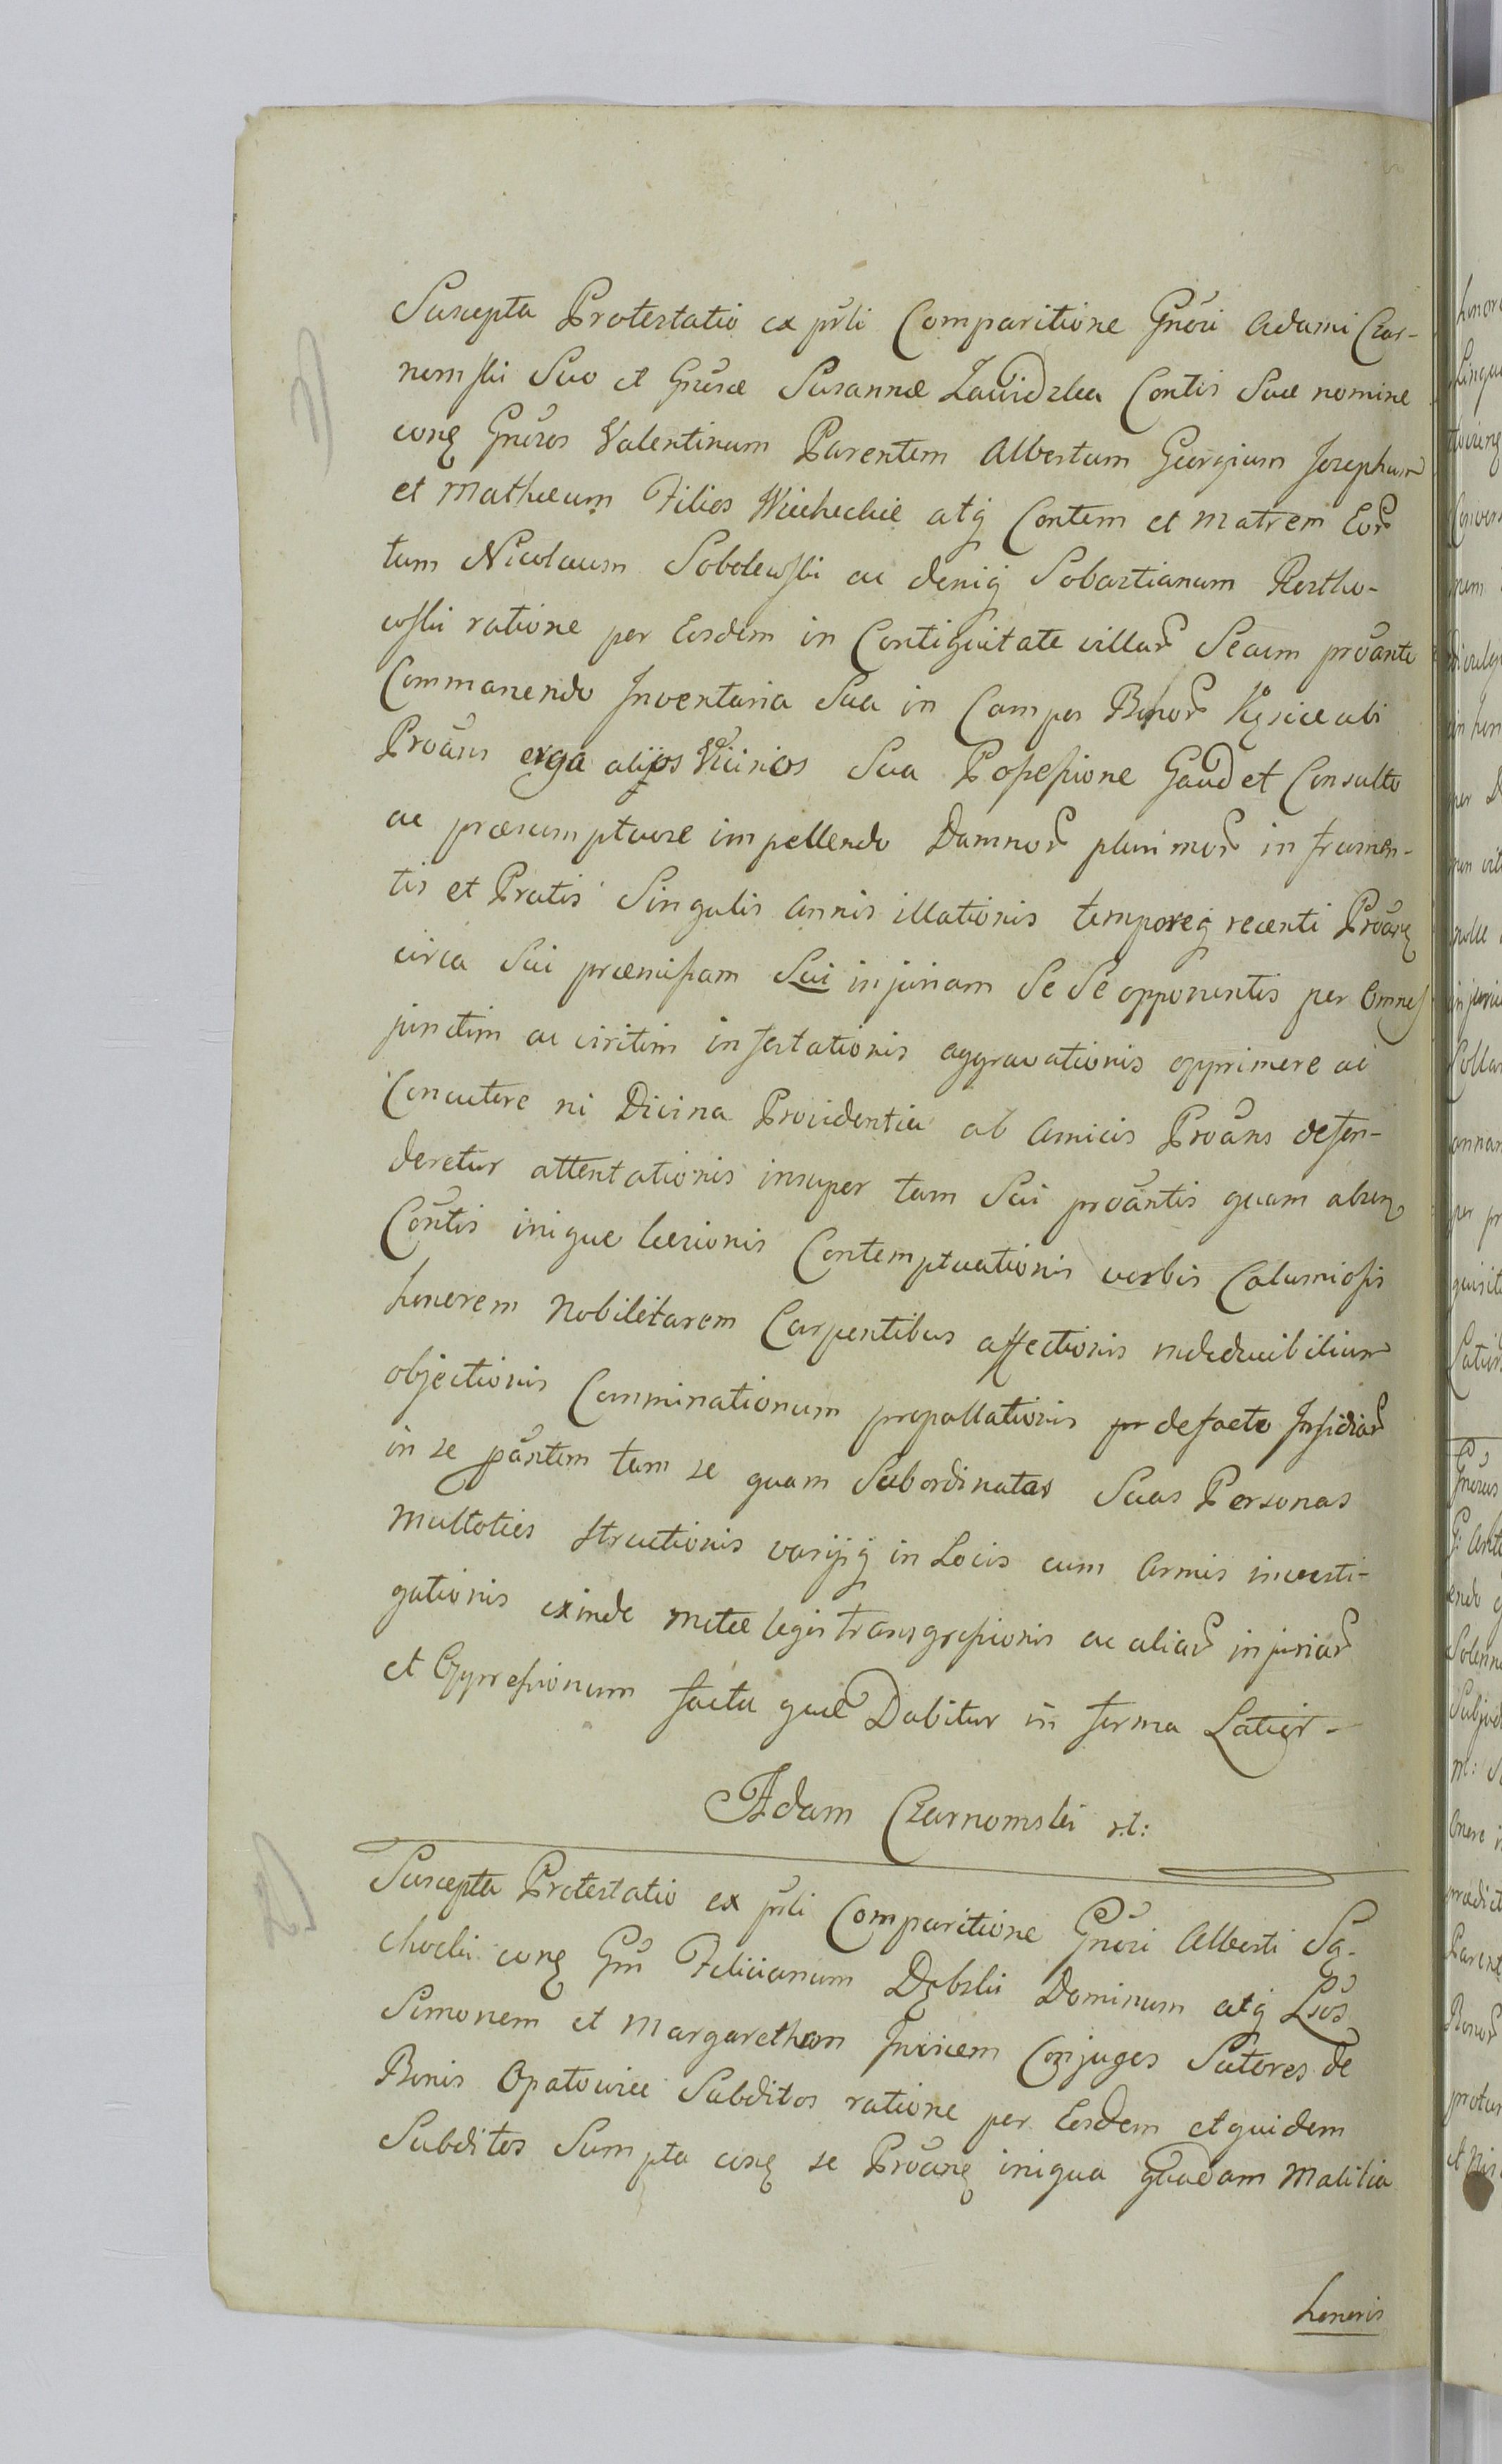 Suscepta Protestatio ex prsli Comparitione Gnõri Adami Czar-
nomski Suo et Gnõsæ Susannæ Zawidzka Contis Suæ nomine
conq Gnõros Valentinum Parentem Albertum Georgium Josephum
et Mathæum Filios atq Contem et Matrem Eor
tum Nicolaum Sobolewski ac deniq Sobastianum Rostko-
wski ratione per Eosdem in Contiguitate villar Secum proãnte
Commanendo Inventaria Sua in Campos Bnor ubi
Proãns erga alijos Vicinios Sua Possessione Gaudet Consulto
ac præsumptuose impellendo Damnor plurimor in frumen-
tis et Pratis Singulis Annis illationis temporeq recenti Proãnq
circa Sui præmissam Sui injuriam Se Se opponentis per Omnes
junctim ac viritim infestationis aggravationis opprimere ac
Concutere ni Divina Providentia ab Amicis Proãns defen-
deretur attentationis insuper tam Sui proãntis quam absen
Cõntis inique læsionis Contemptuationis verbis Calumiosis
honorem Nobilitarem Carpentibus affectionis indeducibilium
objectionis Comminationum propallationis pr defacto Insidiar
in se pãntem tam se quam Subordinatas Suas Personas
Multoties structionis varijsq in Locis cum Armis investi-
gationis exinde metæ legis transgressionis ac aliar injuriar
et Oppressionum facta quæ Dabitur in forma Latior-
Adam Czarnomski
Suscepta Protestatio ex prsli Comparitione Gnõri Alberti Są-
chocki conq Gm Felicianum Dębski Dominum atq Lsos
Simonem et Margaretham Invicem Conjuges Sutores de
Bonis Opatowiec Subditos ratione per Eosdem et quidem
Subditos Sumpta conq se Proãnq iniqua quadam Malitia
honoris